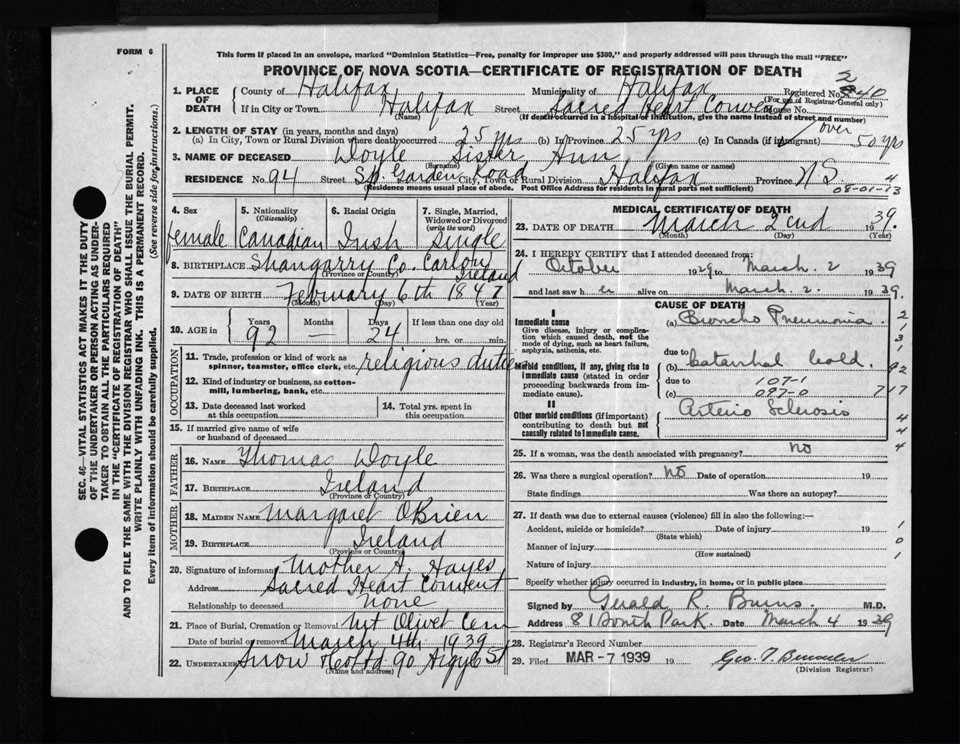 FORM 6
This form if placed in an envelope, marked "Dominion Statistics—Free, penalty for improper use $300," and properly addressed will pass through the mail "FREE"
PROVINCE OF NOVA SCOTIA—CERTIFICATE OF REGISTRATION OF DEATH
1. PLACE OF DEATH County of Halifax Municipality of Halifax Registered No. 240
(For use of Registrar-General only)
If in City or Town Halifax Street Sacred Heart Convent House No.
(Name) (If death occurred in a hospital or institution, give the name instead of street and number)
2. LENGTH OF STAY (in years, months and days)
(a) In City, Town or Rural Division where death occurred 25 yrs (b) in Province 25 yrs (c) In Canada (if immigrant) over 50 yrs
3. NAME OF DECEASED Doyle Sister Ann
(Surname) (Given name or names)
RESIDENCE No. 94 Street Sp. Garden Road City, Town or Rural Division Halifax Province N.S. 4
(Residence means usual place of abode. Post Office Address for residents in rural parts not sufficient) 08-01-13
4. Sex female
5. Nationality (Citizenship) Canadian
6. Racial Origin Irish
7. Single, Married, Widowed or Divorced (write the word) Single
8. BIRTHPLACE Shangarry Co. Carlow Ireland
(Province or Country)
9. DATE OF BIRTH February 6th 1847
(Month) (Day) (Year)
10. AGE in Years 92 Months — Days 24 If less than one day old hrs. or min.
OCCUPATION
11. Trade, profession or kind of work as spinner, teamster, office clerk, etc. religious duties
12. Kind of industry or business, as cotton-mill, lumbering, bank, etc.
13. Date deceased last worked at this occupation
14. Total yrs. spent in this occupation
15. If married give name of wife or husband of deceased
FATHER
16. NAME Thomas Doyle
17. BIRTHPLACE Ireland
(Province or Country)
MOTHER
18. MAIDEN NAME Margaret O'Brien
19. BIRTHPLACE Ireland
(Province or Country)
20. Signature of informant Mother A. Hayes
Address Sacred Heart Convent
Relationship to deceased none
21. Place of Burial, Cremation or Removal Mt Olivet Cem
Date of burial or removal March 4th 1939
22. UNDERTAKER Snow & Co Ltd 90 Argyle St
(Name and address)
MEDICAL CERTIFICATE OF DEATH
23. DATE OF DEATH March 2nd 1939.
(Month) (Day) (Year)
24. I HEREBY CERTIFY that I attended deceased from:
October 1929 to March. 2 1939
and last saw her alive on March. 2. 1939.
CAUSE OF DEATH
I
Immediate cause (a) Broncho Pneumonia. 2
Give disease, injury or complication which caused death, not the mode of dying, such as heart failure, asphyxia, asthenia, etc. 1
3
due to 1
Morbid conditions, if any, giving rise to immediate cause (stated in order proceeding backwards from immediate cause). (b) Catarrhal Cold. 92
due to 107-1
(c) 097-0 717
II
Other morbid conditions (if important) contributing to death but not causally related to immediate cause. Arterio Sclerosis 4
4
25. If a woman, was the death associated with pregnancy? No 4
26. Was there a surgical operation? No Date of operation 19
State findings Was there an autopsy?
27. If death was due to external causes (violence) fill in also the following:—
Accident, suicide or homicide? Date of injury 19 1
(State which) 0
Manner of injury 1
(How sustained)
Nature of injury
Specify whether injury occurred in industry, in home, or in public place
Signed by Gerald R. Burns. M.D.
Address 81 South Park. Date March 4 1939
28. Registrar's Record Number
29. Filed MAR -7 1939 19 Geo. T.
(Division Registrar)
SEC. 46—VITAL STATISTICS ACT MAKES IT THE DUTY
OF THE UNDERTAKER OR PERSON ACTING AS UNDER-
TAKER TO OBTAIN ALL THE PARTICULARS REQUIRED
IN THE "CERTIFICATE OF REGISTRATION OF DEATH"
AND TO FILE THE SAME WITH THE DIVISION REGISTRAR WHO SHALL ISSUE THE BURIAL PERMIT.
WRITE PLAINLY WITH UNFADING INK. THIS IS A PERMANENT RECORD.
Every item of information should be carefully supplied. (See reverse side for instructions.)